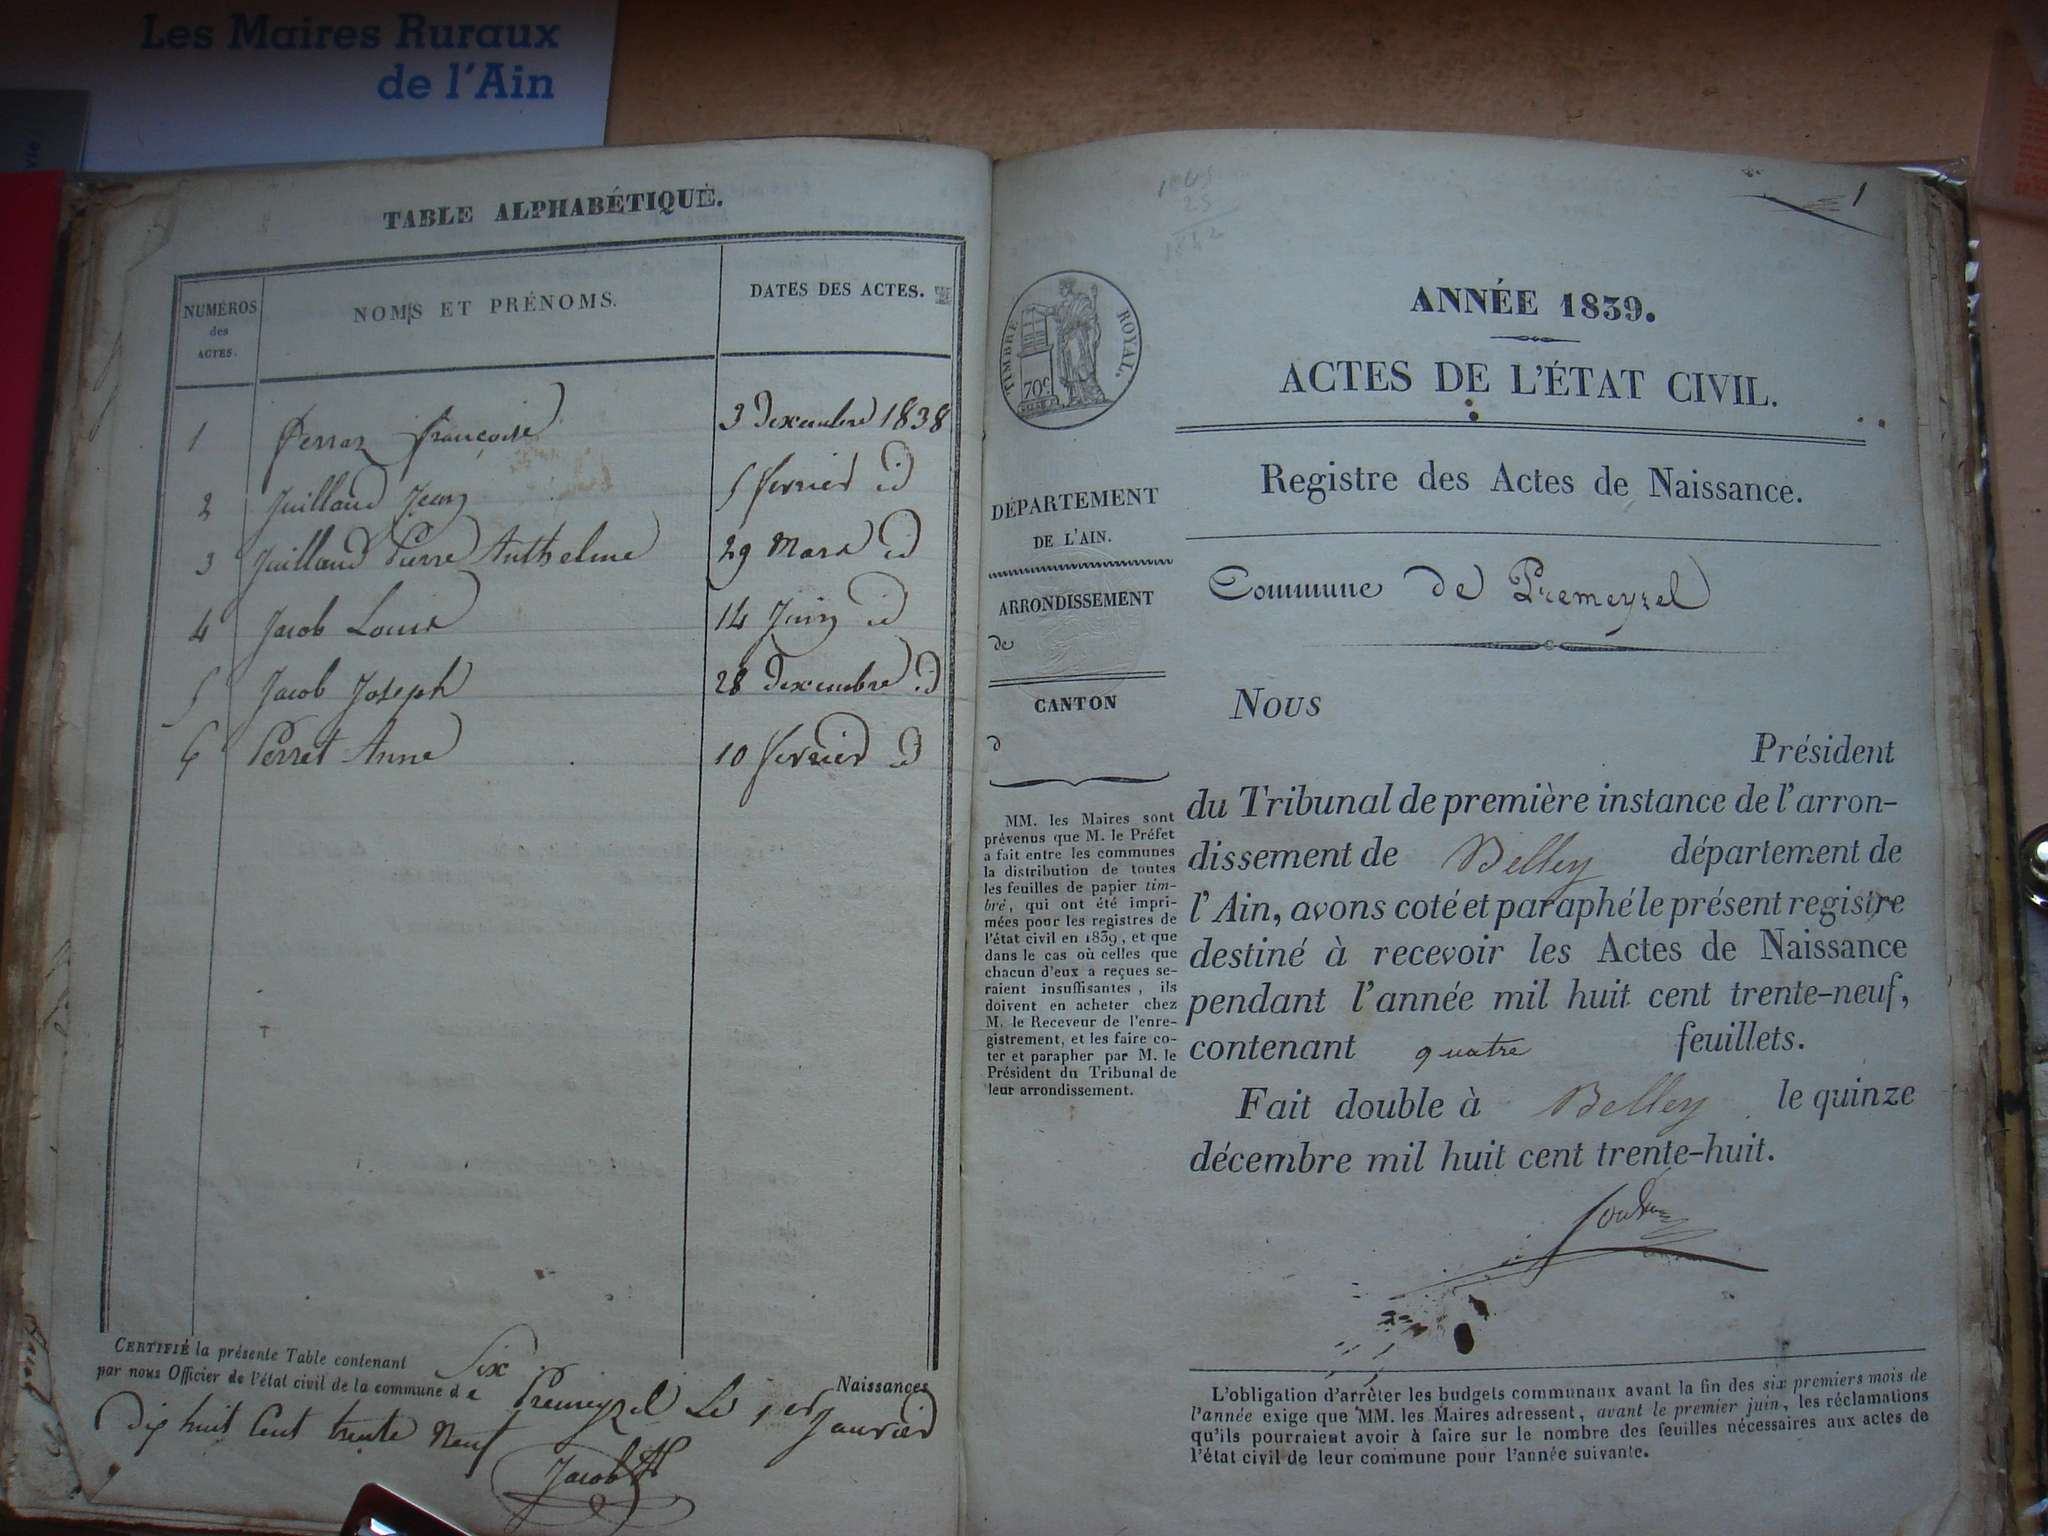 Les Maires Ruraux
de l'Ain
TABLE ALPHABÉTIQUE.
NUMÉROS
des
ACTES.
NOMS ET PRÉNOMS.
DATES DES ACTES.
1 Perraz françoise 3 Dexcembre 1838
2 Juilland Jean 5 fervrier id
3 Juilland Pierre Anthelme 29 Mars id
4 Jacob Louis 14 Juin id
5 Jacob Joseph 28 Dexcembre id
6 Perret Anne 10 fervrier id
CERTIFIÉ la présente Table contenant Six Naissances
par nous Officier de l'état civil de la commune de Premeyzel Le 1er Janvier
Dix huit Cent trente Neuf
Jacob
1
TIMBRE ROYAL.
70c
DÉPARTEMENT
DE L'AIN.
ARRONDISSEMENT
de
CANTON
d
MM. les Maires sont
prévenus que M. le Préfet
a fait entre les communes
la distribution de toutes
les feuilles de papier tim-
bré, qui ont été impri-
mées pour les registres de
l'état civil en 1839, et que
dans le cas où celles que
chacun d'eux a reçues se-
raient insuffisantes, ils
doivent en acheter chez
M. le Receveur de l'enre-
gistrement, et les faire co-
ter et parapher par M. le
Président du Tribunal de
leur arrondissement.
ANNÉE 1839.
ACTES DE L'ÉTAT CIVIL.
Registre des Actes de Naissance.
Commune de Premeyzel
NOUS
Président
du Tribunal de première instance de l'arron-
dissement de Belley département de
l'Ain, avons coté et paraphé le présent registre
destiné à recevoir les Actes de Naissance
pendant l'année mil huit cent trente-neuf,
contenant quatre feuillets.
Fait double à Belley le quinze
décembre mil huit cent trente-huit.
L'obligation d'arrêter les budgets communaux avant la fin des six premiers mois de
l'année exige que MM. les Maires adressent, avant le premier juin, les réclamations
qu'ils pourraient avoir à faire sur le nombre des feuilles nécessaires aux actes de
l'état civil de leur commune pour l'année suivante.